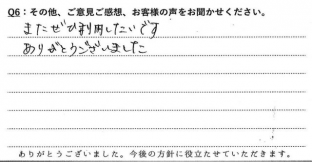 Q6：その他、ご意見ご感想、お客様の声をお聞かせください。
またぜひ利用したいです
ありがとうございました
ありがとうございました。今後の方針に役立たせていただきます。